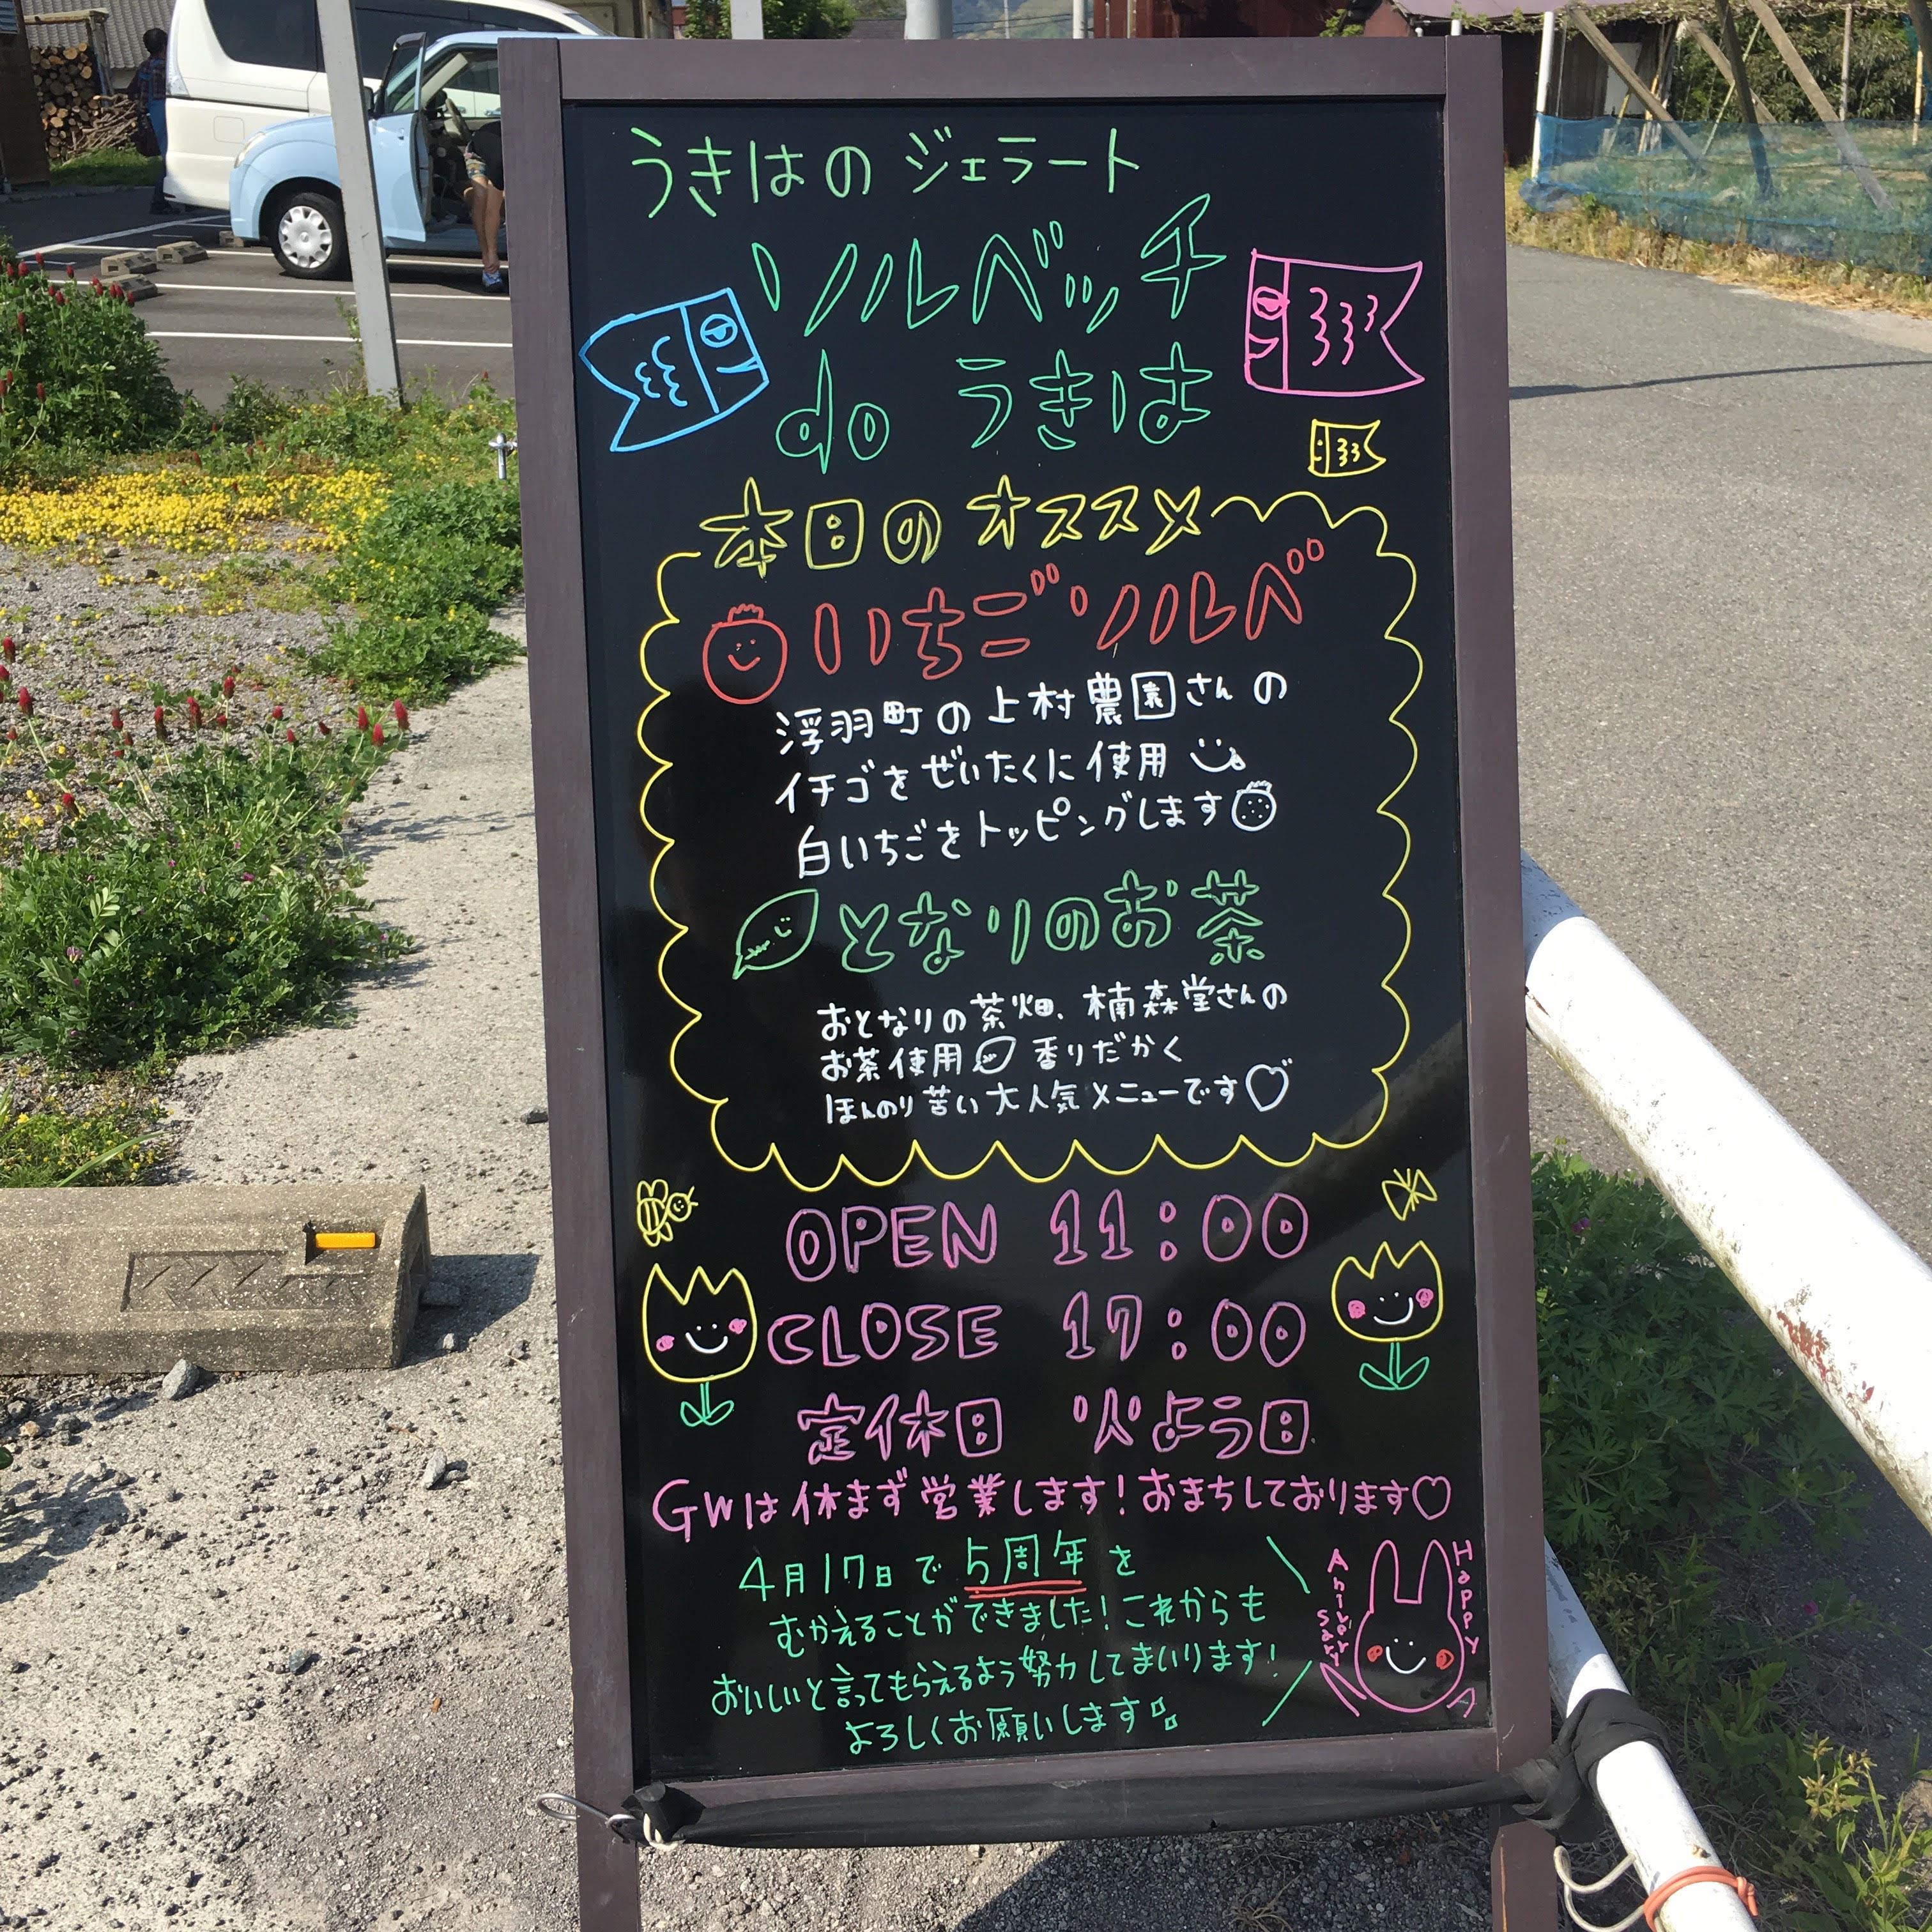 うきはのジェラート
ソルベッチ
do うきは
本日のオススメ
いちごソルベ
浮羽町の上村農園さんの
イチゴをぜいたくに使用
白いちごをトッピングします
となりのお茶
おとなりの茶畑、楠森堂さんの
お茶使用 香りだかく
ほんのり苦い大人気メニューです♡
OPEN 11:00
CLOSE 17:00
定休日 火よう日
GWは休まず営業します!おまちしております♡
4月17日で5周年を
むかえることができました!これからも
おいしいと言ってもらえるよう努力してまいります!
よろしくお願いします
Happy